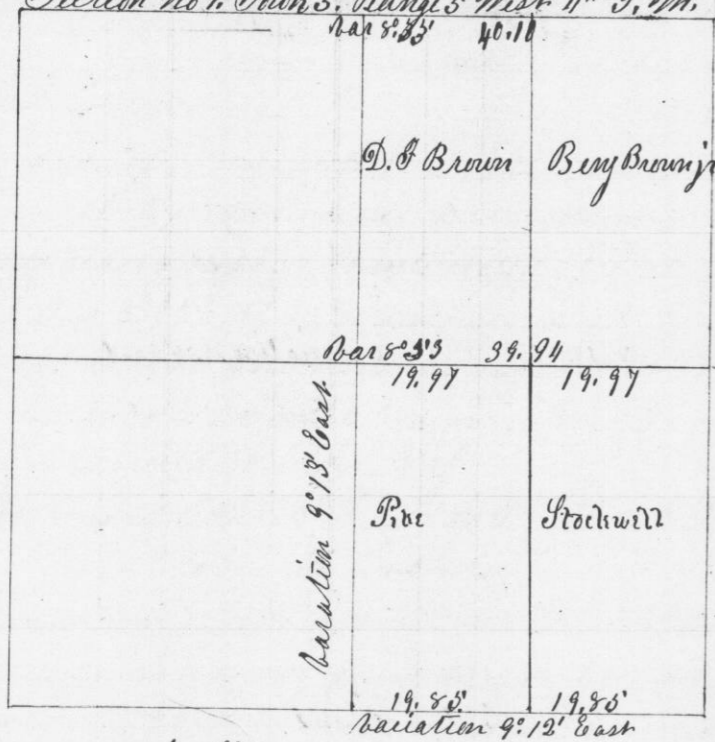 Section No 1. Town 5. Range 5 West 4th P. M.
Var 8° 35' 40.10
D. F Brown Benj Brown jr
Var 8° 33 39.94
19.97 19.97
Variation 9° 13' East
Pike Stockwell
19.85 19.85
Variation 9° 12' East